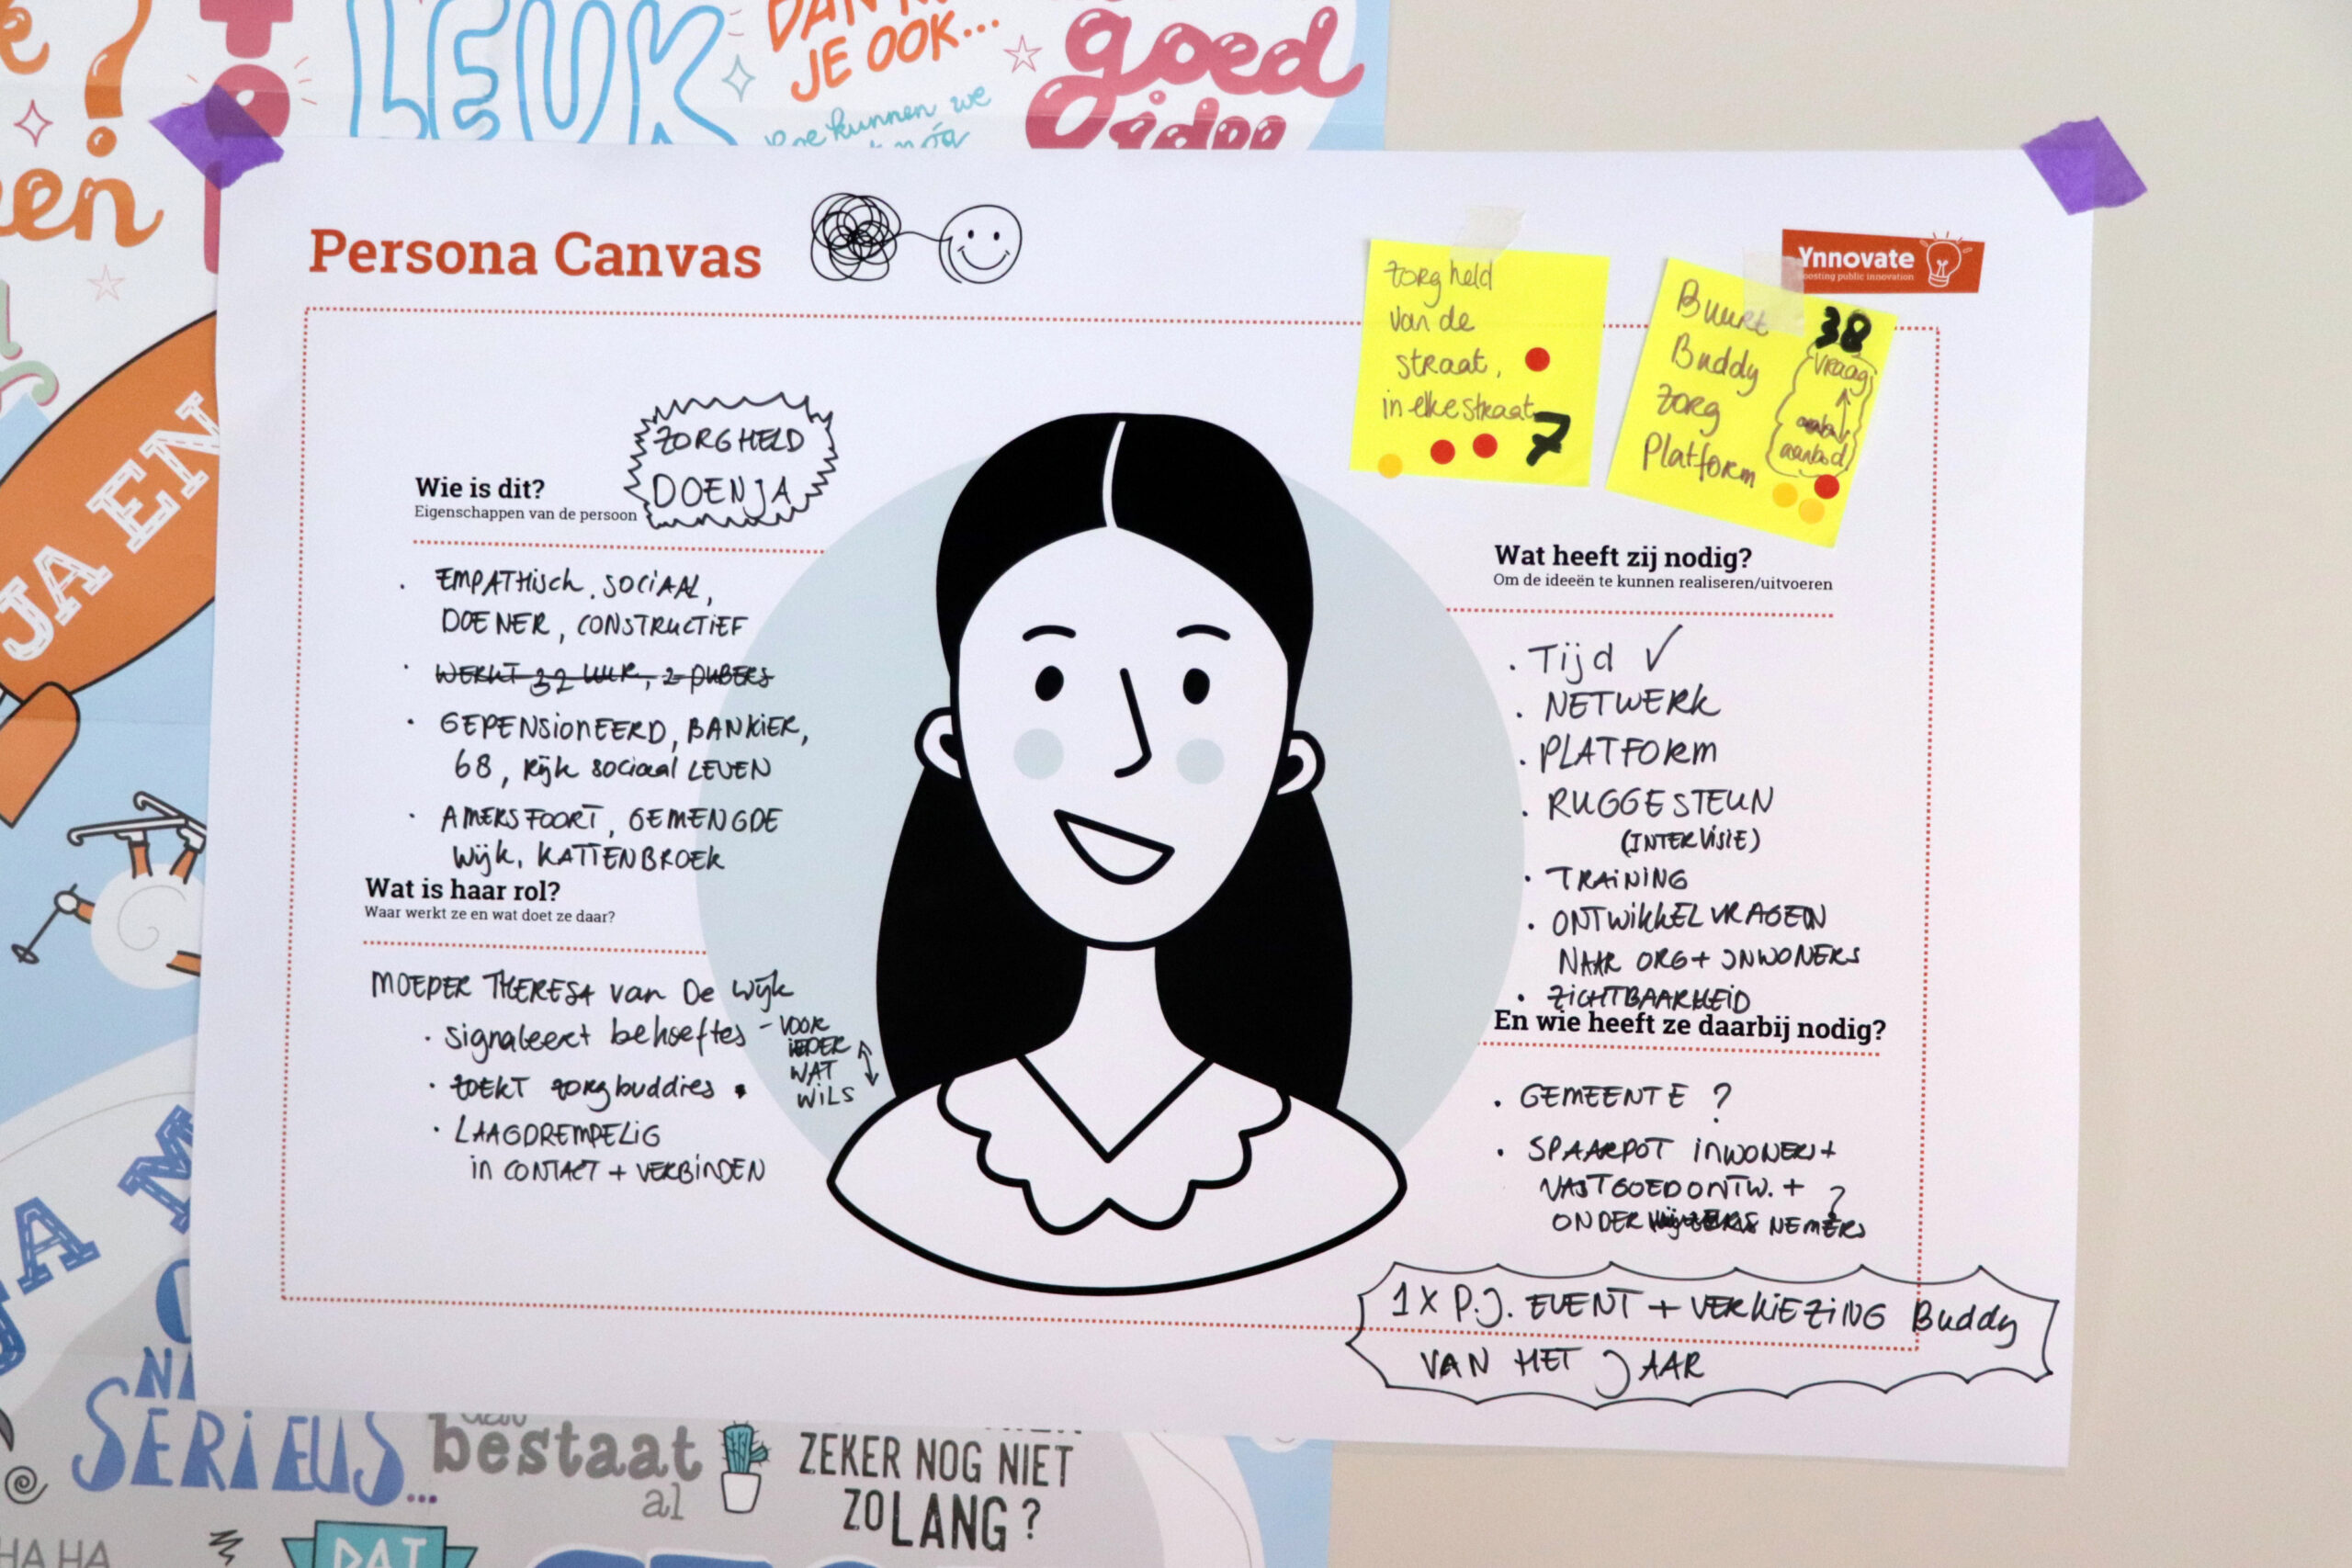 LEUK
JE OOK...
goed
hoe kunnen we
en
JA EN
Persona Canvas
Ynnovate
boosting public innovation
zorgheld
van de
straat,
in elke straat
7
Buurt
Buddy
zorg
Platform
38
vraag
aanbod
ZORGHELD
DOENJA
Wie is dit?
Eigenschappen van de persoon
. EMPATHISCH, SOCIAAL,
DOENER, CONSTRUCTIEF
. WERKT 32 UUR, 2 PUBERS
. GEPENSIONEERD, BANKIER,
68, Rijk sociaal LEVEN
. AMERSFOORT, GEMENGDE
Wijk, KATTENBROEK
Wat is haar rol?
Waar werkt ze en wat doet ze daar?
MOEDER THERESA van De Wijk
. signaleert behoeftes - VOOR
IEDER
WAT
WILS
. ZOEKT zorgbuddies .
. LAAGDREMPELIG
in CONTACT + VERBINDEN
Wat heeft zij nodig?
Om de ideeën te kunnen realiseren/uitvoeren
. Tijd ✓
. NETWERK
. PLATFORM
. RUGGESTEUN
(INTERVISIE)
. TRAINING
. ONTWIKKELVRAGEN
NAAR ORG + INWONERS
. ZICHTBAARHEID
En wie heeft ze daarbij nodig?
. GEMEENTE ?
. SPAARPOT INWONERS +
VASTGOEDONTW. + ?
ONDERNEMERS
1X P.J. EVENT + VERKIEZING Buddy
VAN HET JAAR
SERIEUS...
bestaat
al
ZEKER NOG NIET
ZO LANG ?
HA HA
DAT